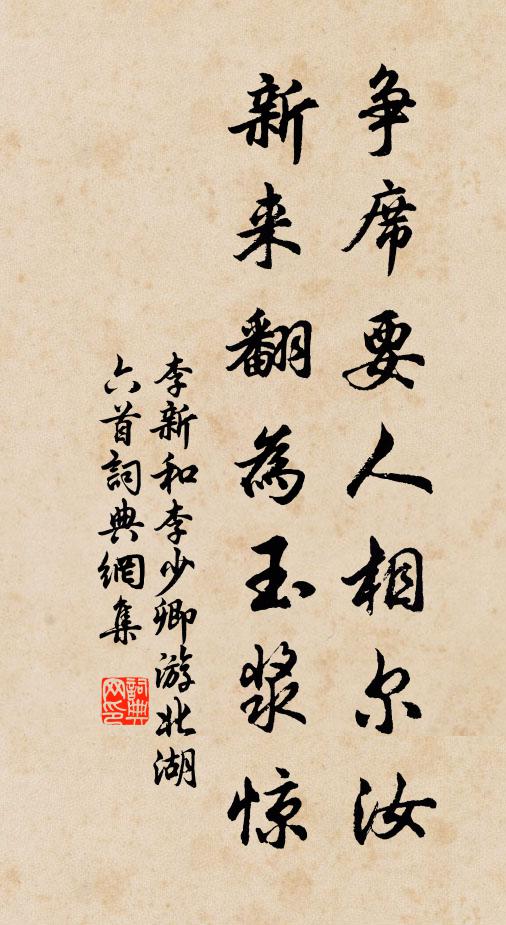 争席要人相尔汝
新来翻為玉漿惊
李新和李少卿游北湖
六首詞典網集
詞典
网印